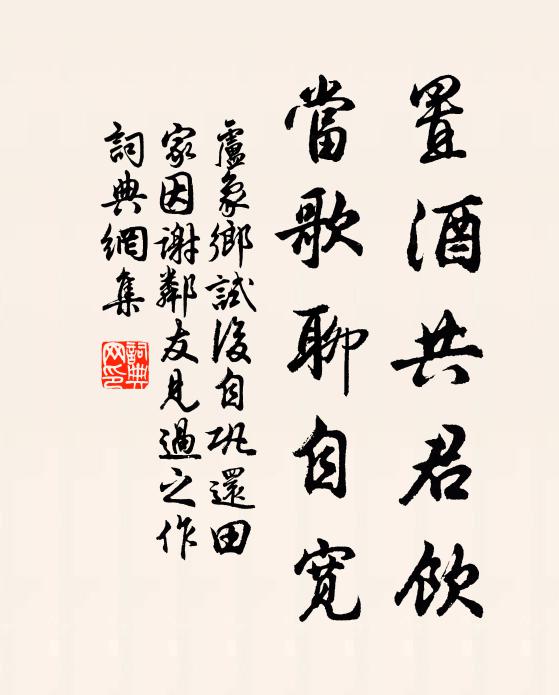 置酒共君飲
當歌聊自寬
盧象鄉試後自巩還田
家因謝鄰友見過之作
詞典網集
詞典
网印